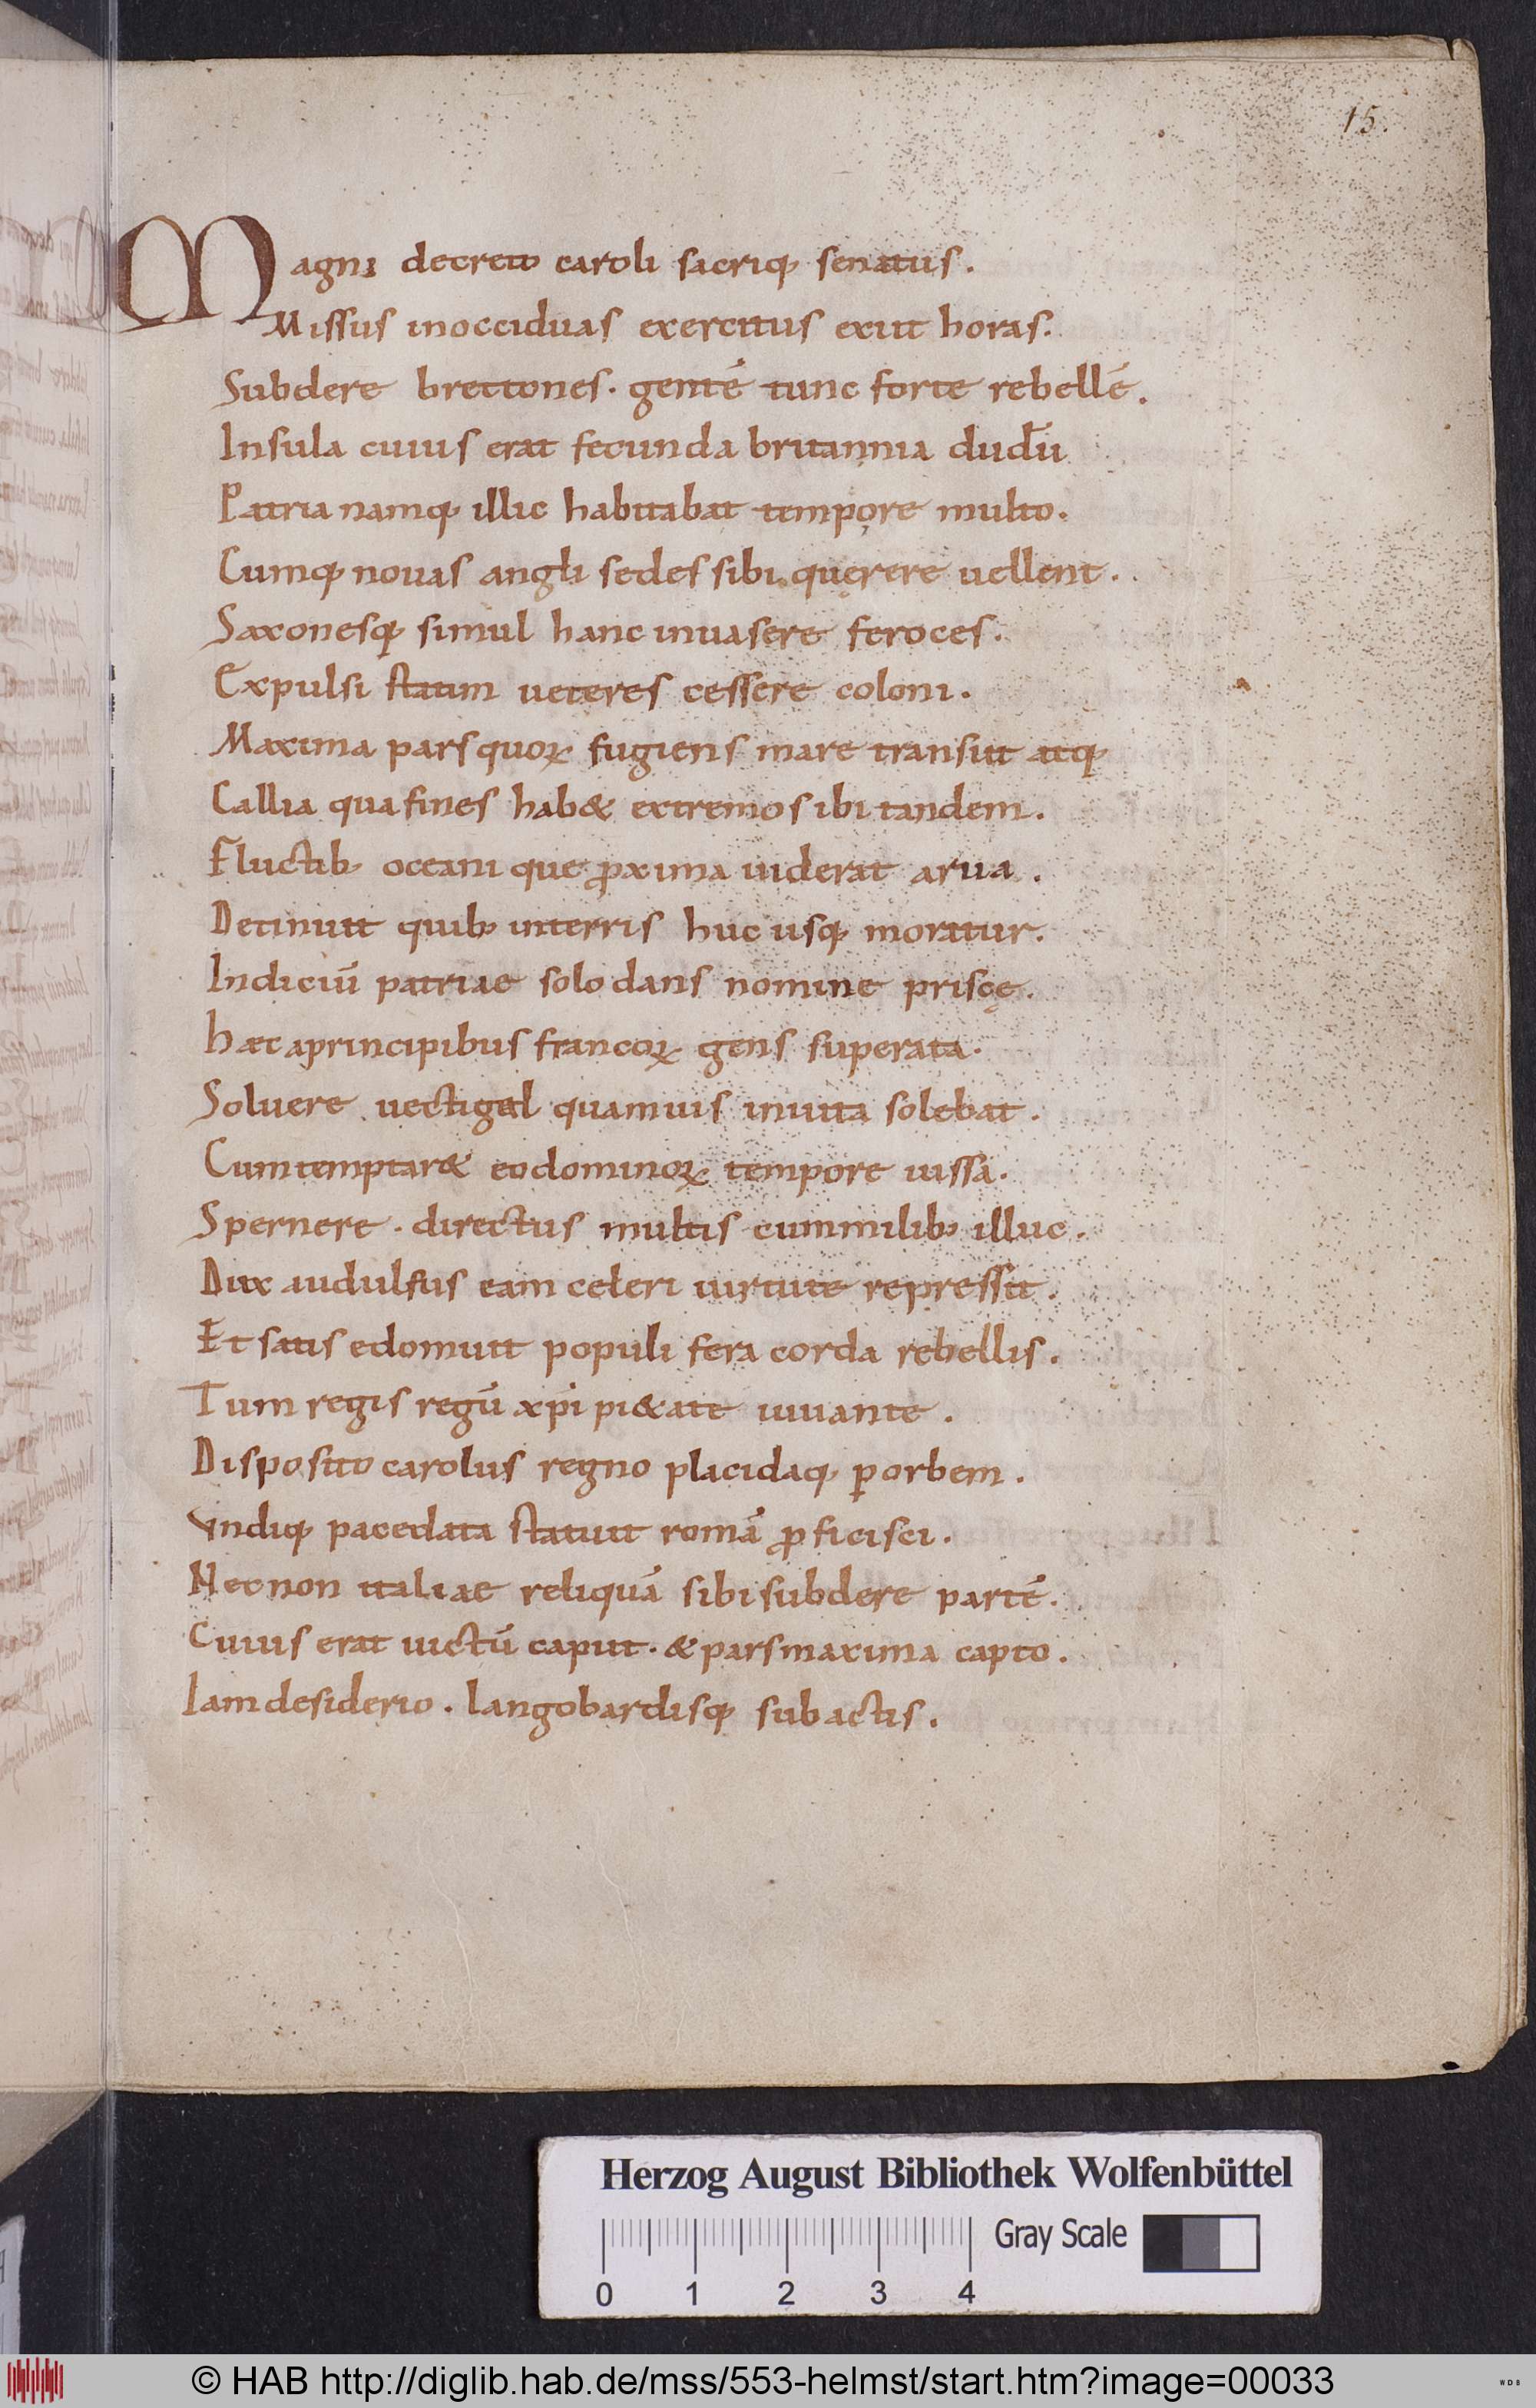 15.
Magni decreto caroli sacriq; senatus.
Missus inocciduas exercitus exiit horas.
Subdere brettones. gentē tunc forte rebellē.
Insula cuius erat fecunda britannia dudū
Patria namq; illic habitabat tempore multo.
Cumq; nouas angli sedes sibi quęrere uellent.
Saxonesq; simul hanc inuasere feroces.
Expulsi statim ueteres cessere coloni.
Maxima pars quoꝝ fugiens mare transiit atq;
Gallia qua fines hab& extremos ibi tandem.
Fluctib; oceani que ꝓxima uiderat arua.
Detinuit quib; interris huc usq; moratur.
Indiciū patriae solo dans nomine priscę.
Haec aprincipibus francoꝝ gens superata.
Soluere uectigal quamuis inuita solebat.
Cumtemptar& eo dominoꝝ tempore iussa.
Spernere. directus multis cum milib; illuc.
Dux audulfus eam celeri uirtute repressit.
Et satis edomuit populi fera corda rebellis.
Tum regis regū xp̄i pi&ate iuuante.
Disposito carolus regno placidaq; ꝑ orbem.
Vndiq; pacedata statuit romā ꝓficisci.
Necnon italiae reliquā sibi subdere partē.
Cuius erat uictū caput. & pars maxima capto.
Iam desiderio. langobardisq; subactis.
Herzog August Bibliothek Wolfenbüttel
Gray Scale
0 1 2 3 4
© HAB http://diglib.hab.de/mss/553-helmst/start.htm?image=00033
WDB